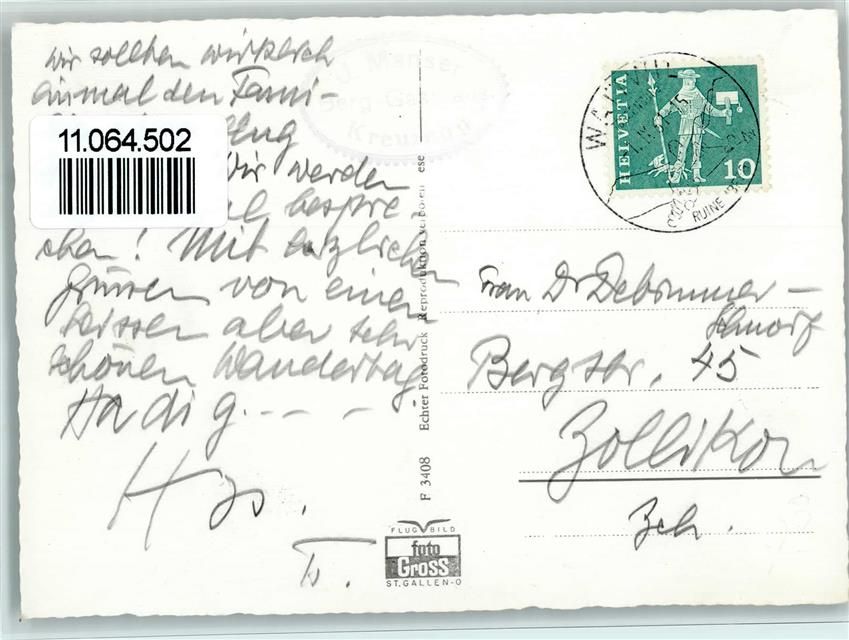 wir sollten wirklich
einmal den Fami-
11.064.502
Wir werden
bespre
chen! Mit herzlichen
Grüssen von einem
heissen aber sehr
schönen Wandertag
Ha di g. - - -
J. Manser
Berg-Gasthaus
Kreuzegg
F 3408 Echter Fotodruck Reproduktion verboten ese
FLUGBILD
foto
Gross
ST. GALLEN-O
WATTWIL
RUINE
HELVETIA
10
Frau Dr Debrunner-
Schnorf
Bergstr. 45
Zollikon
Zch.